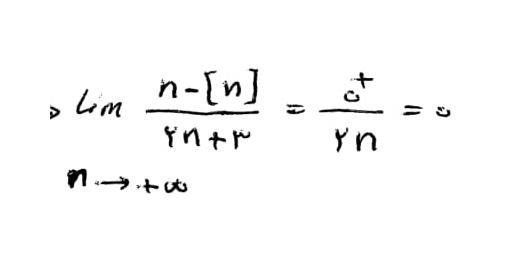 lim (n-[n])/(۲n+۳) = ۰⁺/۲n = ۰
n→+∞